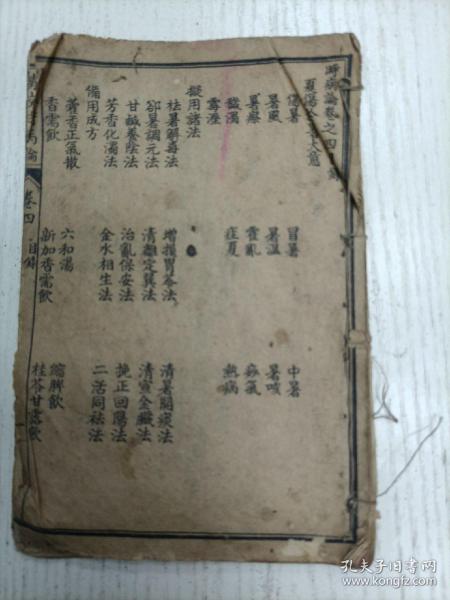 時病論卷之四目錄
夏傷於暑大意
傷暑 冒暑 中暑
暑風 暑溫 暑咳
暑瘵 霍亂 痧氣
穢濁 疰夏 熱病
霉溼
擬用諸法
祛暑解毒法 增損胃苓法 清暑開痰法
卻暑調元法 清離定巽法 清宣金臟法
甘鹹養陰法 治亂保安法 挽正回陽法
芳香化濁法 金水相生法 二活同祛法
備用成方
藿香正氣散 六和湯 縮脾飲
香薷飲 新加香薷飲 桂苓甘露飲
卷四 目錄
孔夫子旧书网
www.kongfz.com